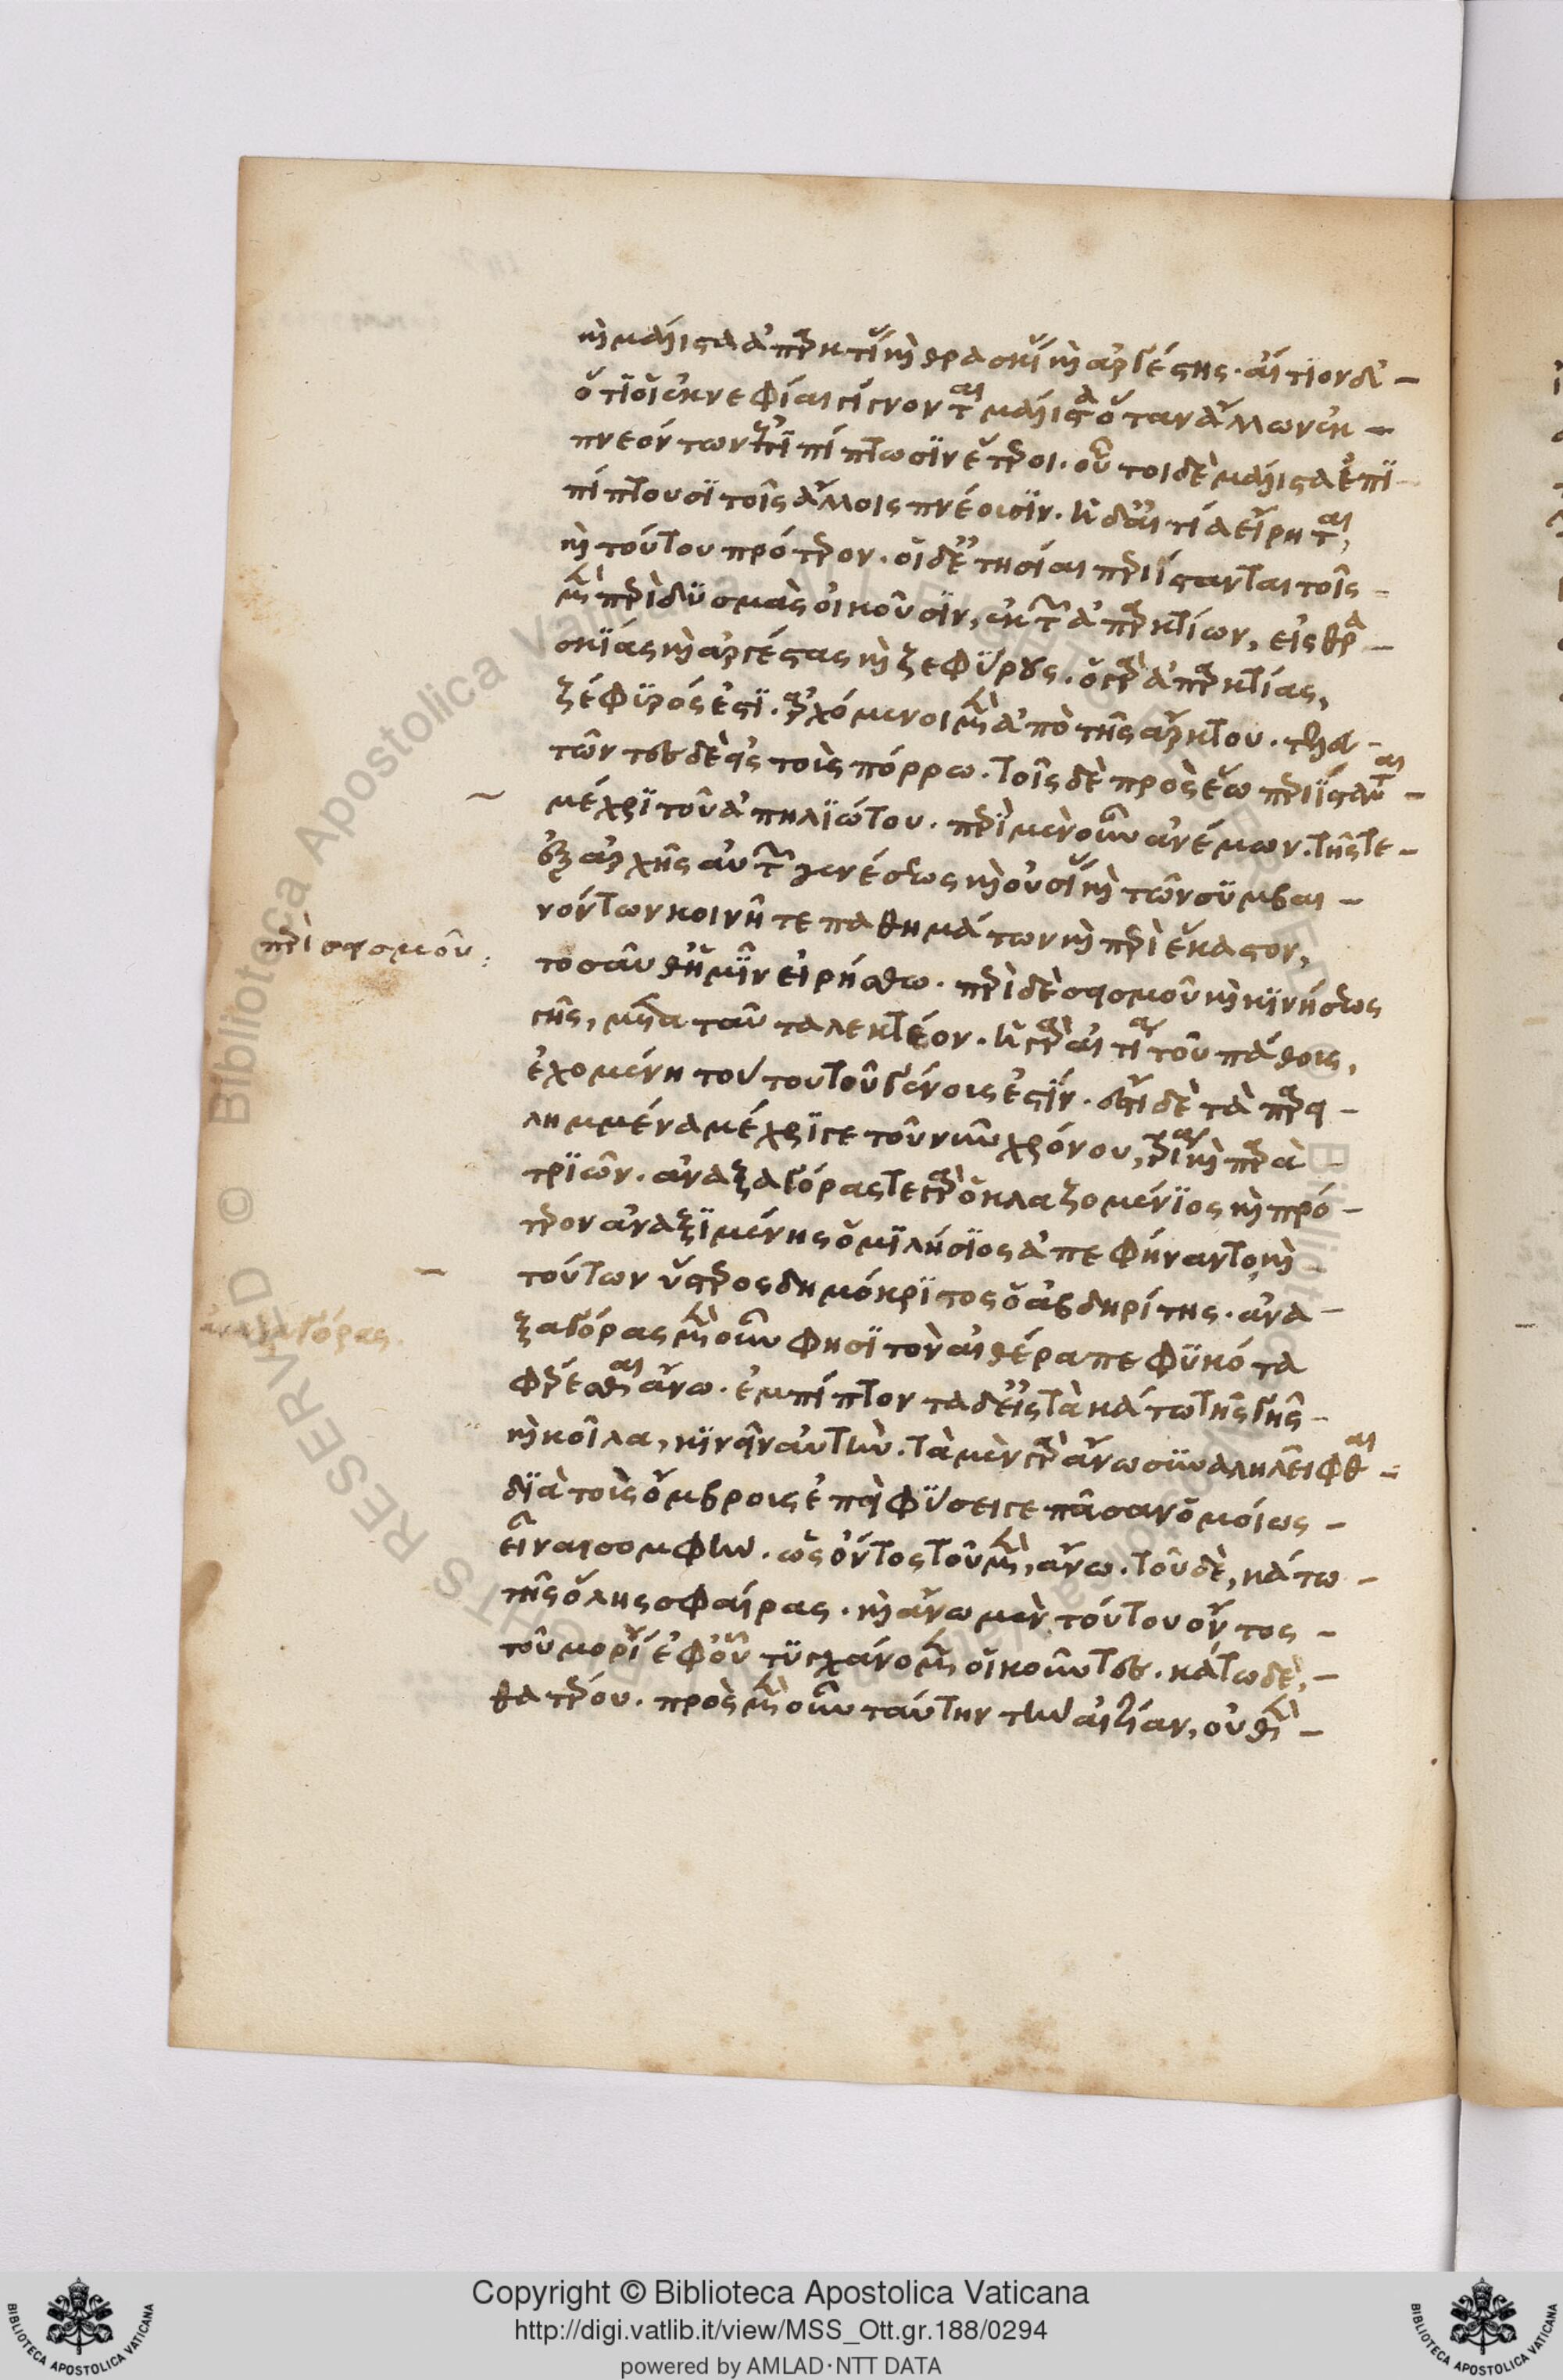 καὶ μάλιστα ἀπαρκτίου καὶ θρασκίου καὶ ἀργέστης. αἴτιον δ'
ὅτι οἱ ἐκνεφίαι γίγνονται μάλιστα ὅταν ἄλλων ἐκ
πνεόντων ἐπιπίπτωσιν ἕτεροι. οὗτοι δὲ μάλιστα ἐπι
πίπτουσι τοῖς ἄλλοις πνέουσιν. ἡ δ' αἰτία εἴρηται,
καὶ τούτου πρότερον. οἱ δ' ἐτησίαι περιίστανται τοῖς
μὲν περὶ δυσμὰς οἰκοῦσιν, ἐκ τῶν ἀπαρκτίων, εἰς θρα
σκίας καὶ ἀργέστας καὶ ζεφύρους. ὁ γὰρ ἀπαρκτίας,
ζέφυρός ἐστι. ἀρχόμενοι μὲν ἀπὸ τῆς ἄρκτου. τελευ
τῶντες δὲ εἰς τοὺς πόρρω. τοῖς δὲ πρὸς ἕω περιίστανται
μέχρι τοῦ ἀπηλιώτου. περὶ μὲν οὖν ἀνέμων. τῆς τε
ἐξ ἀρχῆς αὐτῶν γενέσεως καὶ οὐσίας καὶ τῶν συμβαι
νόντων κοινῇ τε παθημάτων καὶ περὶ ἕκαστον,
τοσαῦθ' ἡμῖν εἰρήσθω. περὶ δὲ σεισμοῦ καὶ κινήσεως
γῆς, μετὰ ταῦτα λεκτέον. ἡ γὰρ αἰτία τοῦ πάθους,
ἐχομένη τούτου τοῦ γένους ἐστίν. ἔστι δὲ τὰ παρει
λημμένα μέχρι γε τοῦ νῦν χρόνου, τρία καὶ παρὰ
τριῶν. ἀναξαγόρας τε γὰρ ὁ κλαζομένιος καὶ πρό
τερον ἀναξιμένης ὁ μιλήσιος ἀπεφήναντο, καὶ
τούτων ὕστερος δημόκριτος ὁ ἀβδηρίτης. ἀνα
περὶ σεισμοῦ:
ἀναξαγόρας.
ξαγόρας μὲν οὖν φησι τὸν αἰθέρα πεφυκότα
φέρεσθαι ἄνω. ἐμπίπτοντα δ' εἰς τὰ κάτω τῆς γῆς
καὶ κοῖλα, κινεῖν αὐτήν. τὰ μὲν γὰρ ἄνω συναληλεῖφθαι
διὰ τοὺς ὄμβρους ἐπεὶ φύσει γε πᾶσαν ὁμοίως
εἶναι σομφήν. ὡς ὄντος τοῦ μὲν, ἄνω. τοῦ δὲ, κάτω
τῆς ὅλης σφαίρας. καὶ ἄνω μὲν τούτου ὄντος
τοῦ μορίου ἐφ' οὗ τυγχάνομεν οἰκοῦντες. κάτω δὲ,
θατέρου. πρὸς μὲν οὖν ταύτην τὴν αἰτίαν, οὐθὲν
Copyright © Biblioteca Apostolica Vaticana
http://digi.vatlib.it/view/MSS_Ott.gr.188/0294
powered by AMLAD·NTT DATA
BIBLIOTECA APOSTOLICA VATICANA
BIBLIOTECA APOSTOLICA VATICANA